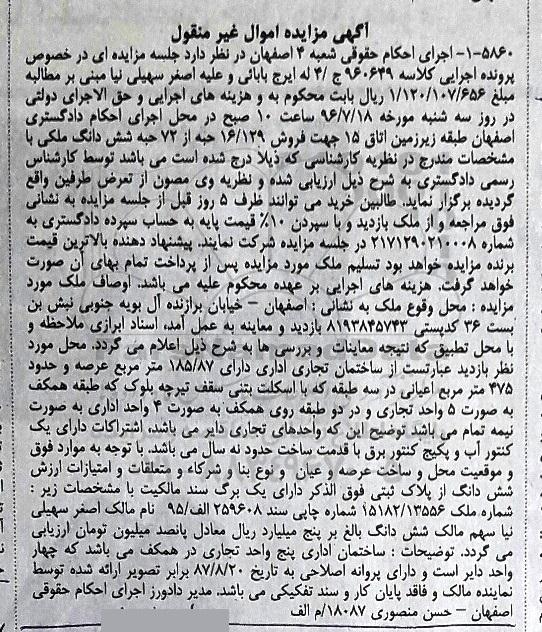 آگهی مزایده اموال غیر منقول
۵۸۶۰-۱- اجرای احکام حقوقی شعبه ۴ اصفهان در نظر دارد جلسه مزایده ای در خصوص
پرونده اجرایی کلاسه ۹۶۰۶۴۹ ج /۴ له ایرج بابائی و علیه اصغر سهیلی نیا مبنی بر مطالبه
مبلغ ۱/۱۲۰/۱۰۷/۶۵۶ ریال بابت محکوم به و هزینه های اجرایی و حق الاجرای دولتی
در روز سه شنبه مورخه ۹۶/۷/۱۸ ساعت ۱۰ صبح در محل اجرای احکام دادگستری
اصفهان طبقه زیرزمین اتاق ۱۵ جهت فروش ۱۶/۱۲۹ حبه از ۷۲ حبه شش دانگ ملکی با
مشخصات مندرج در نظریه کارشناسی که ذیلا درج شده است می باشد توسط کارشناس
رسمی دادگستری به شرح ذیل ارزیابی شده و نظریه وی مصون از تعرض طرفین واقع
گردیده برگزار نماید. طالبین خرید می توانند ظرف ۵ روز قبل از جلسه مزایده به نشانی
فوق مراجعه و از ملک بازدید و با سپردن ۱۰٪ قیمت پایه به حساب سپرده دادگستری به
شماره ۲۱۷۱۲۹۰۲۱۰۰۰۸ در جلسه مزایده شرکت نمایند. پیشنهاد دهنده بالاترین قیمت
برنده مزایده خواهد بود تسلیم ملک مورد مزایده پس از پرداخت تمام بهای آن صورت
خواهد گرفت. هزینه های اجرایی بر عهده محکوم علیه می باشد. اوصاف ملک مورد
مزایده : محل وقوع ملک به نشانی : اصفهان – خیابان برازنده آل بویه جنوبی نبش بن
بست ۳۶ کدپستی ۸۱۹۳۸۴۵۷۴۳ بازدید و معاینه به عمل آمد، اسناد ابرازی ملاحظه و
با محل تطبیق که نتیجه معاینات و بررسی ها به شرح ذیل اعلام می گردد. محل مورد
نظر بازدید عبارتست از ساختمان تجاری اداری دارای ۱۸۵/۸۷ متر مربع عرصه و حدود
۴۷۵ متر مربع اعیانی در سه طبقه که با اسکلت بتنی سقف تیرچه بلوک که طبقه همکف
به صورت ۵ واحد تجاری و در دو طبقه روی همکف به صورت ۴ واحد اداری به صورت
نیمه تمام می باشد توضیح این که واحدهای تجاری دایر می باشد، اشتراکات دارای یک
کنتور آب و پکیج کنتور برق با قدمت ساخت حدود نه سال می باشد. با توجه به موارد فوق
و موقعیت محل و ساخت عرصه و عیان و نوع بنا و شرکاء و متعلقات و امتیازات ارزش
شش دانگ از پلاک ثبتی فوق الذکر دارای یک برگ سند مالکیت با مشخصات زیر :
شماره ملک ۱۵۱۸۲/۱۳۵۵۶ شماره چاپی سند ۲۵۹۶۰۸ الف/۹۵ نام مالک اصغر سهیلی
نیا سهم مالک شش دانگ بالغ بر پنج میلیارد ریال معادل پانصد میلیون تومان ارزیابی
می گردد. توضیحات : ساختمان اداری پنج واحد تجاری در همکف می باشد که چهار
واحد دایر است و دارای پروانه اصلاحی به تاریخ ۸۷/۸/۲۰ برابر تصویر ارائه شده توسط
نماینده مالک و فاقد پایان کار و سند تفکیکی می باشد. مدیر دادورز اجرای احکام حقوقی
اصفهان – حسن منصوری ۱۸۰۸۷/م الف